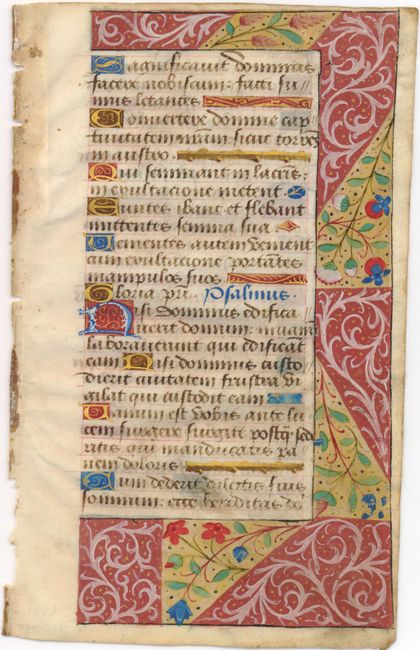 Magnificavit dominus
facere nobiscum: facti su-
mus letantes
Convertere domine cap-
tivitatem nram: sicut torrēs
in austro.
Qui seminant in lacrīs:
in exultacione metent.
Euntes ibant et flebant
mittentes semina sua.
Venientes autem venient
cum exultacione portantes
manipulos suos
Gloria pri. Psalmus.
Nisi Dominus edifica-
verit domum: in vanū
laboraverunt qui edificāt
eam Nisi dominus custo-
dierit civitatem frustra vi-
gilat qui custodit eam
Vanum est vobis ante lu-
cem surgere surgite postq̄ sede-
ritis qui manducatis pa-
nem doloris
Cum dederit dilectis suis
somnum: ecce hereditas do-